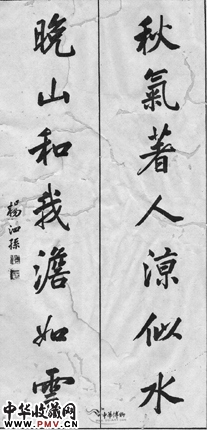 秋氣著人涼似水
晚山和我澹如雲
楊泗孫
中华博物
中华收藏网
www.PMV.cn